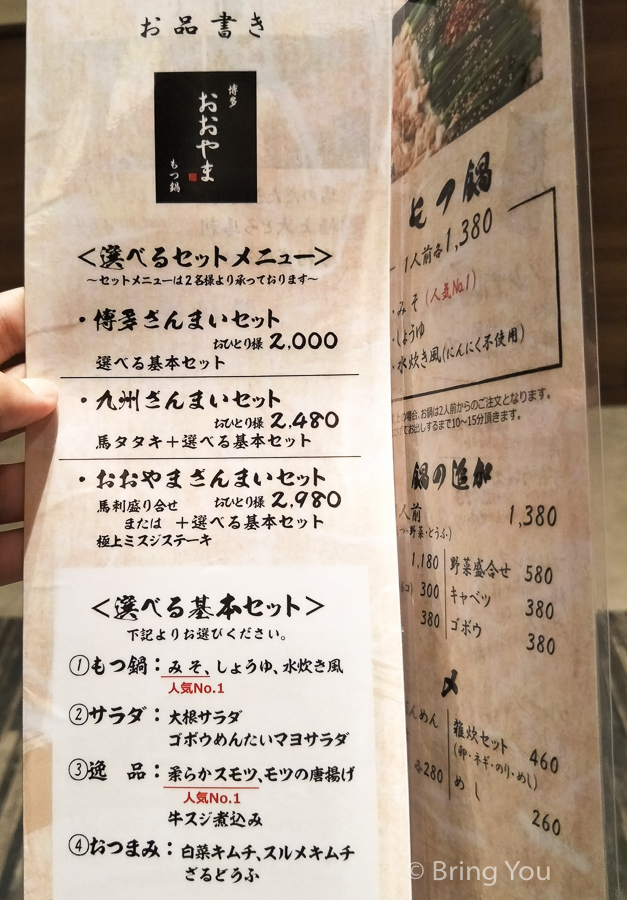 お品書き
博多
おおやま
もつ鍋
＜選べるセットメニュー＞
～セットメニューは2名様より承っております～
・博多ざんまいセット
おひとり様 2,000
選べる基本セット
・九州ざんまいセット
おひとり様 2,480
馬タタキ＋選べる基本セット
・おおやまざんまいセット
馬刺盛り合せ おひとり様 2,980
または ＋選べる基本セット
極上ミスジステーキ
＜選べる基本セット＞
下記よりお選びください。
①もつ鍋：みそ、しょうゆ、水炊き風
人気No.1
②サラダ：大根サラダ
ゴボウめんたいマヨサラダ
③逸 品：柔らかスモツ、モツの唐揚げ
人気No.1
牛スジ煮込み
④おつまみ：白菜キムチ、スルメキムチ
ざるどうふ
もつ鍋
1人前各1,380
・みそ(人気No.1)
・しょうゆ
・水炊き風(にんにく不使用)
場合、お鍋は2人前からのご注文となります。
お出しするまで10～15分頂きます。
鍋の追加
人前 1,380
・野菜・とうふ)
1,180
300
380
野菜盛合せ 580
キャベツ 380
ゴボウ 380
〆
めん
各280
雑炊セット 460
(卵・ネギ・のり・めし)
めし 260
© Bring You